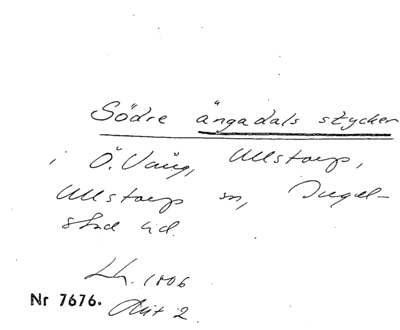 Södre ängadals stycken
i Ö. Vång, Ullstorp,
Ullstorp sn, Ingel-
stad hd.
Lh. 1806
Nr 7676. Akt 2